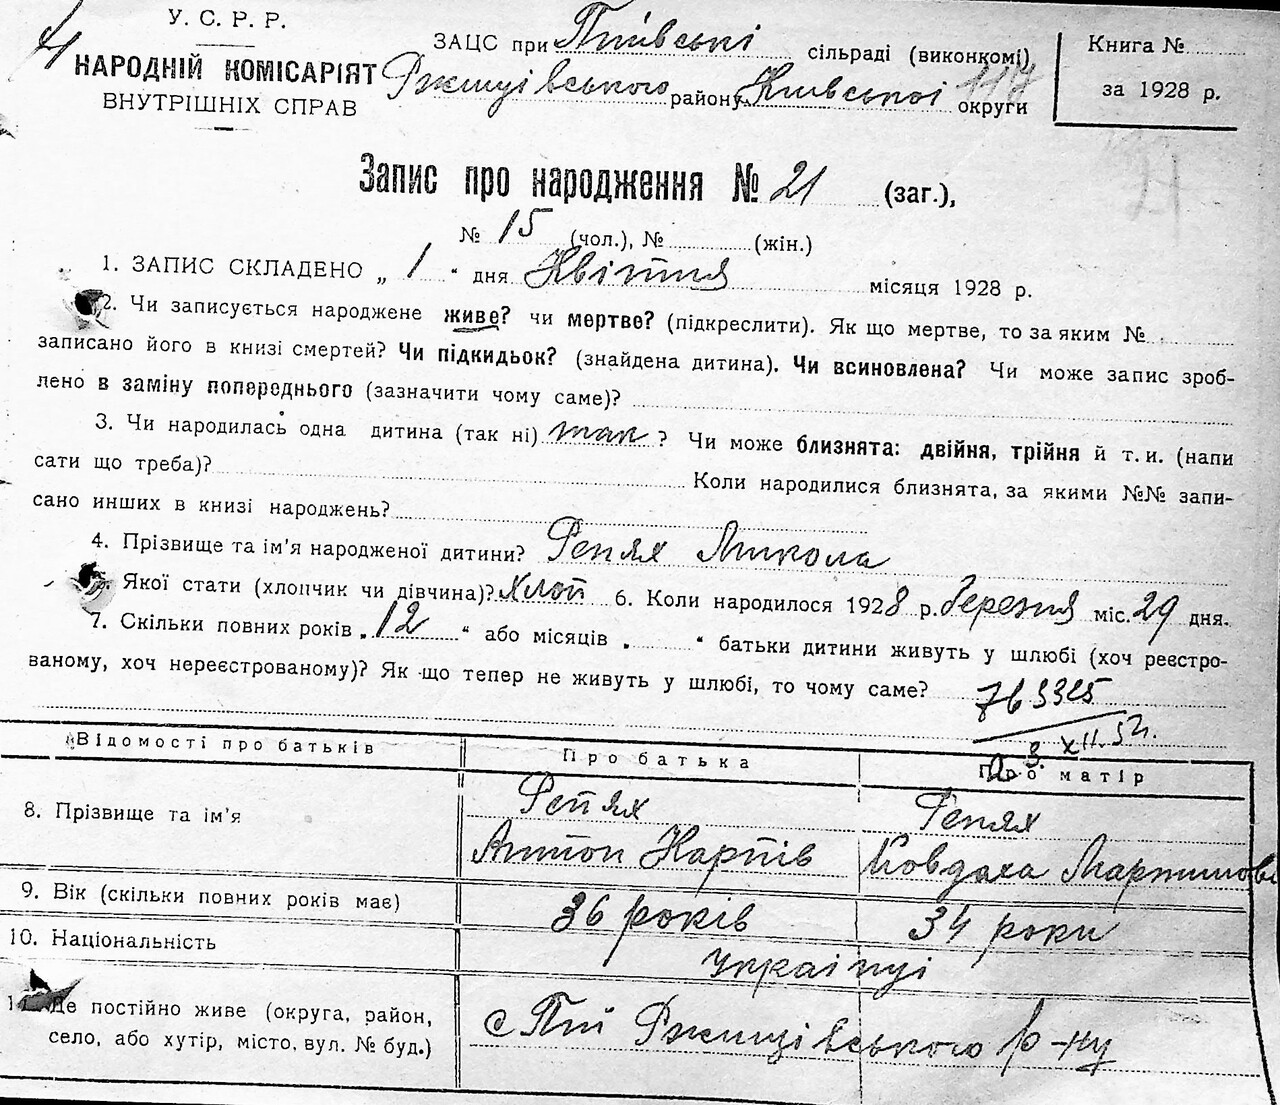 У. С. Р. Р.
НАРОДНІЙ КОМІСАРІЯТ
ВНУТРІШНІХ СПРАВ
ЗАЦС при Пиївські сільраді (виконкомі)
Ржищівського району Київської округи
117
Книга №
за 1928 р.
Запис про народження № 21 (заг.),
№ 15 (чол.), № (жін.)
21
1. ЗАПИС СКЛАДЕНО „ 1 “ дня Квітня місяця 1928 р.
2. Чи записується народжене живе? чи мертве? (підкреслити). Як що мертве, то за яким №
записано його в книзі смертей? Чи підкидьок? (знайдена дитина). Чи всиновлена? Чи може запис зроб-
лено в заміну попереднього (зазначити чому саме)?
3. Чи народилась одна дитина (так ні) так ? Чи може близнята: двійня, трійня й т. и. (напи
сати що треба)? Коли народилися близнята, за якими №№ запи-
сано инших в книзі народжень?
4. Прізвище та ім'я народженої дитини? Репях Микола
Якої стати (хлопчик чи дівчина)? хлоп 6. Коли народилося 1928 р. березня міс. 29 дня.
7. Скільки повних років „ 12 “ або місяців „ “ батьки дитини живуть у шлюбі (хоч реєстро-
ваному, хоч нереєстрованому)? Як що тепер не живуть у шлюбі, то чому саме?
Відомості про батьків Про батька Про матір
8. Прізвище та ім'я Репях Репях
Антон Карпів Мартинова
9. Вік (скільки повних років має) 36 років 34 роки
10. Національність Українці
11. Де постійно живе (округа, район,
село, або хутір, місто, вул. № буд.)
с Пії Ржищівського р-ну